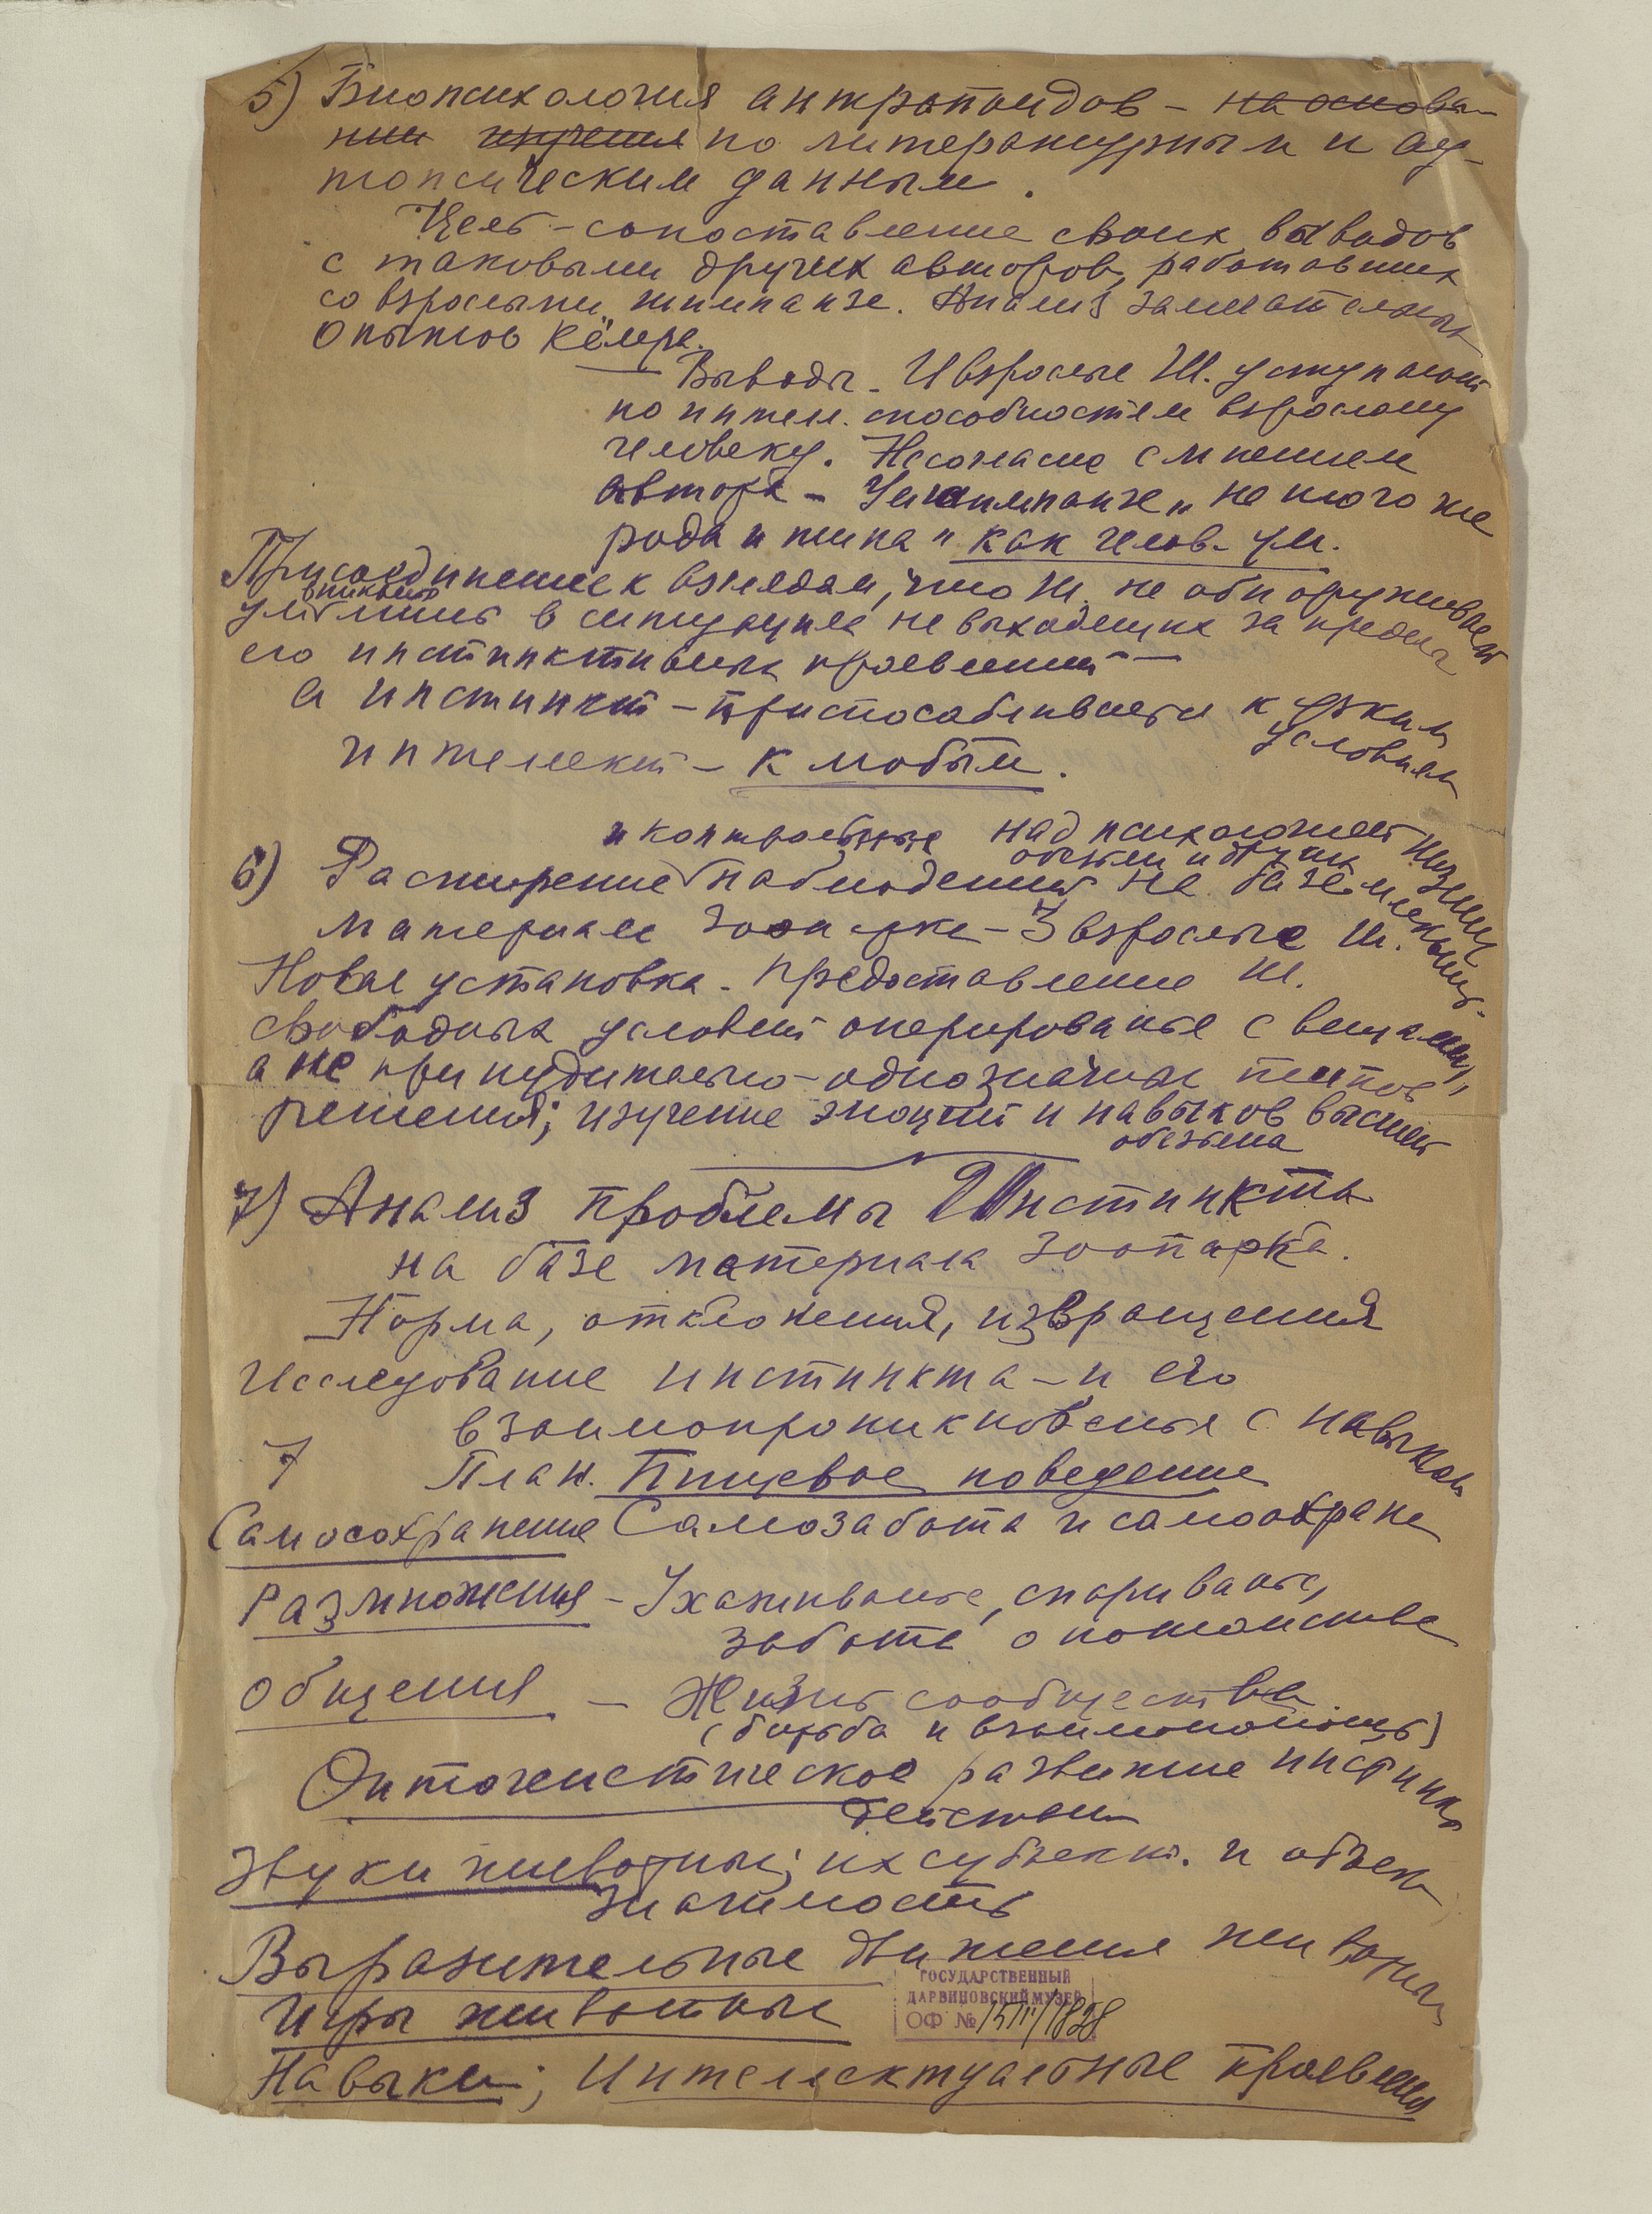 5) Биопсихология антропоидов – на основа-
нии изучения по литературным и ау-
топсическим данным.
Цель – сопоставление своих выводов
с таковыми других авторов, работавших
со взрослыми шимпанзе. Анализ замечательных
опытов Кёлера.
Выводы – И взрослые Ш. уступают
по интел. способностям взрослому
человеку. Несогласие с мнением
автора – Ум шимпанзе „не иного же
рода и типа" как челов. ум.
Присоединение к взглядам, что Ш. не обнаруживает
ум лишь в ситуациях не выходящих за пределы
его инстинктивных проявлений –
а инстинкт – приспосабливается к узким
условиям
интеллект – к любым.
и контрольные над психологией низших
обезьян и других
6) Расширение наблюдений на базе
материале зоопарка – 3 взрослые Ш.
Новая установка – предоставление Ш.
свободных условий оперированье с вещами,
а не принудительно-однозначных типов
решений; изучение эмоций и навыков высшей
обезьяны
7) Анализ проблемы Инстинкта
на базе материала Зоопарка.
Норма, отклонения, извращения
Исследование инстинкта – и его
взаимопроникновенья с навыком
7 План. Пищевое поведение
Самосохранение Самозабота и самоохрана
Размножения – Ухаживанье, спариванье,
забота о потомстве
Общения – Жизнь сообщества
(борьба и взаимопомощь)
Онтогенетическое развитие инстинкт
действий
Звуки животных; их субъект. и объект
значимость
Выразительные движения животных
Игры животных
ГОСУДАРСТВЕННЫЙ
ДАРВИНОВСКИЙ МУЗЕЙ
ОФ №
Навыки; Интеллектуальные проявления